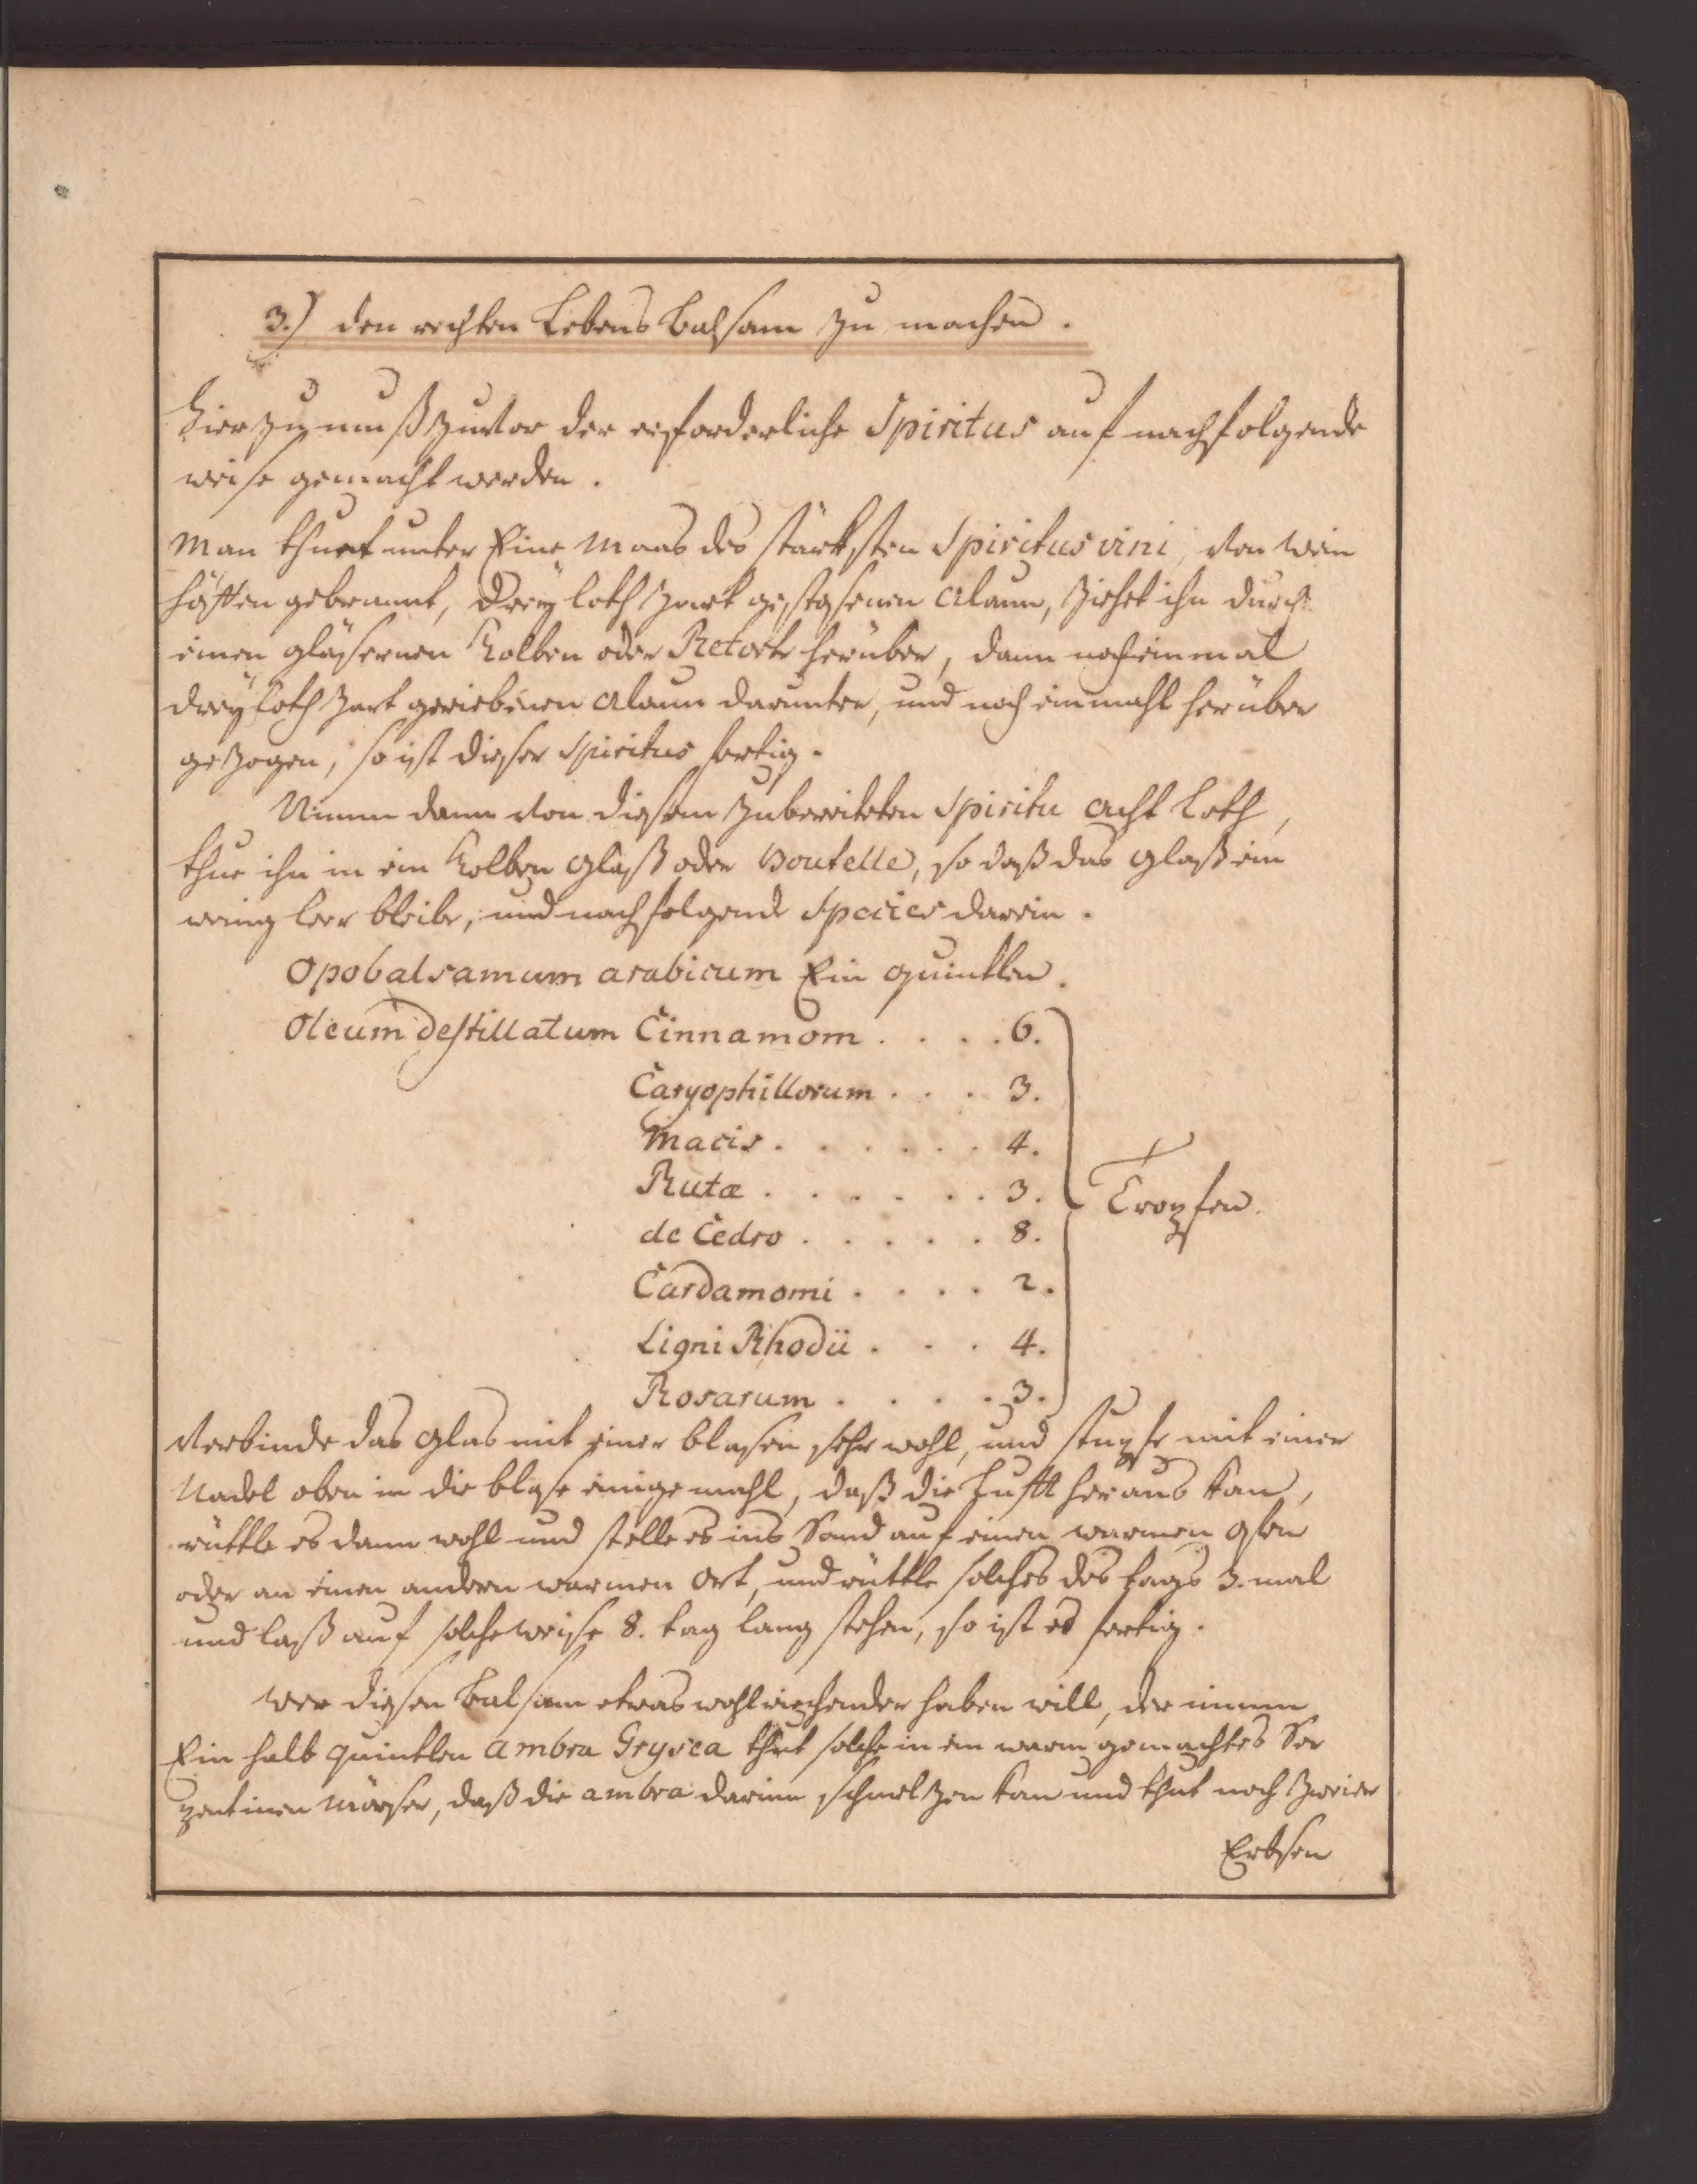 3.) den rechten Lebens Balsam zu machen.
Hierzu muß zuvor der erforderliche Spiritus auf nachfolgende
weise gemacht werden.
Man thuet unter Eine Maas des stärksten Spiritus vini, von Wein
häffen gebrannt, Dreÿ loth zart gestosenen Alaun, ziehet ihn durch
einen gläsernen Kolben oder Retort herüber, dann noch einmal
dreÿ loth zart geriebenen Alaun darunter, und noch einmahl herüber
gezogen, so ist dieser Spiritus fertig.
Nimm dann von diesem zubereiteten Spiritu acht loth,
thue ihn in ein Kolben Glaß oder Boutelle, so daß das Glaß ein
wenig leer bleibe, und nachfolgende Species darein.
Opobalsamum arabicum Ein quintlen.
Oleum destillatum Cinnamom . . . . 6.
Caryophillorum . . . 3.
Macis . . . . . . 4.
Rutæ . . . . . . 3.
Tropfen.
de Cedro . . . . . 8.
Cardamomi . . . . 2.
Ligni Rhodii . . . 4.
Rosarum . . . . 3.
Verbinde das Glas mit einer blasen sehr wohl, und stupfe mit einer
Nadel oben in die blase einige mahl, daß die Lufft heraus kan,
rüttle es dann wohl und stelle es ins Sand auf einen warmen Ofen
oder an einen andern warmen Ort, und rüttle solches des tags 3. mal
und laß auf solche weise 8. tag lang stehen, so ist es fertig.
Wer diesen Balsam etwas wohlriechender haben will, der nimm
Ein halb quintlen Ambra Grysea thut solche in ein warm gemachtes Ser
pentinen Mörser, daß die ambra darinn schmeltzen kan und thut noch zweier
Erbsen